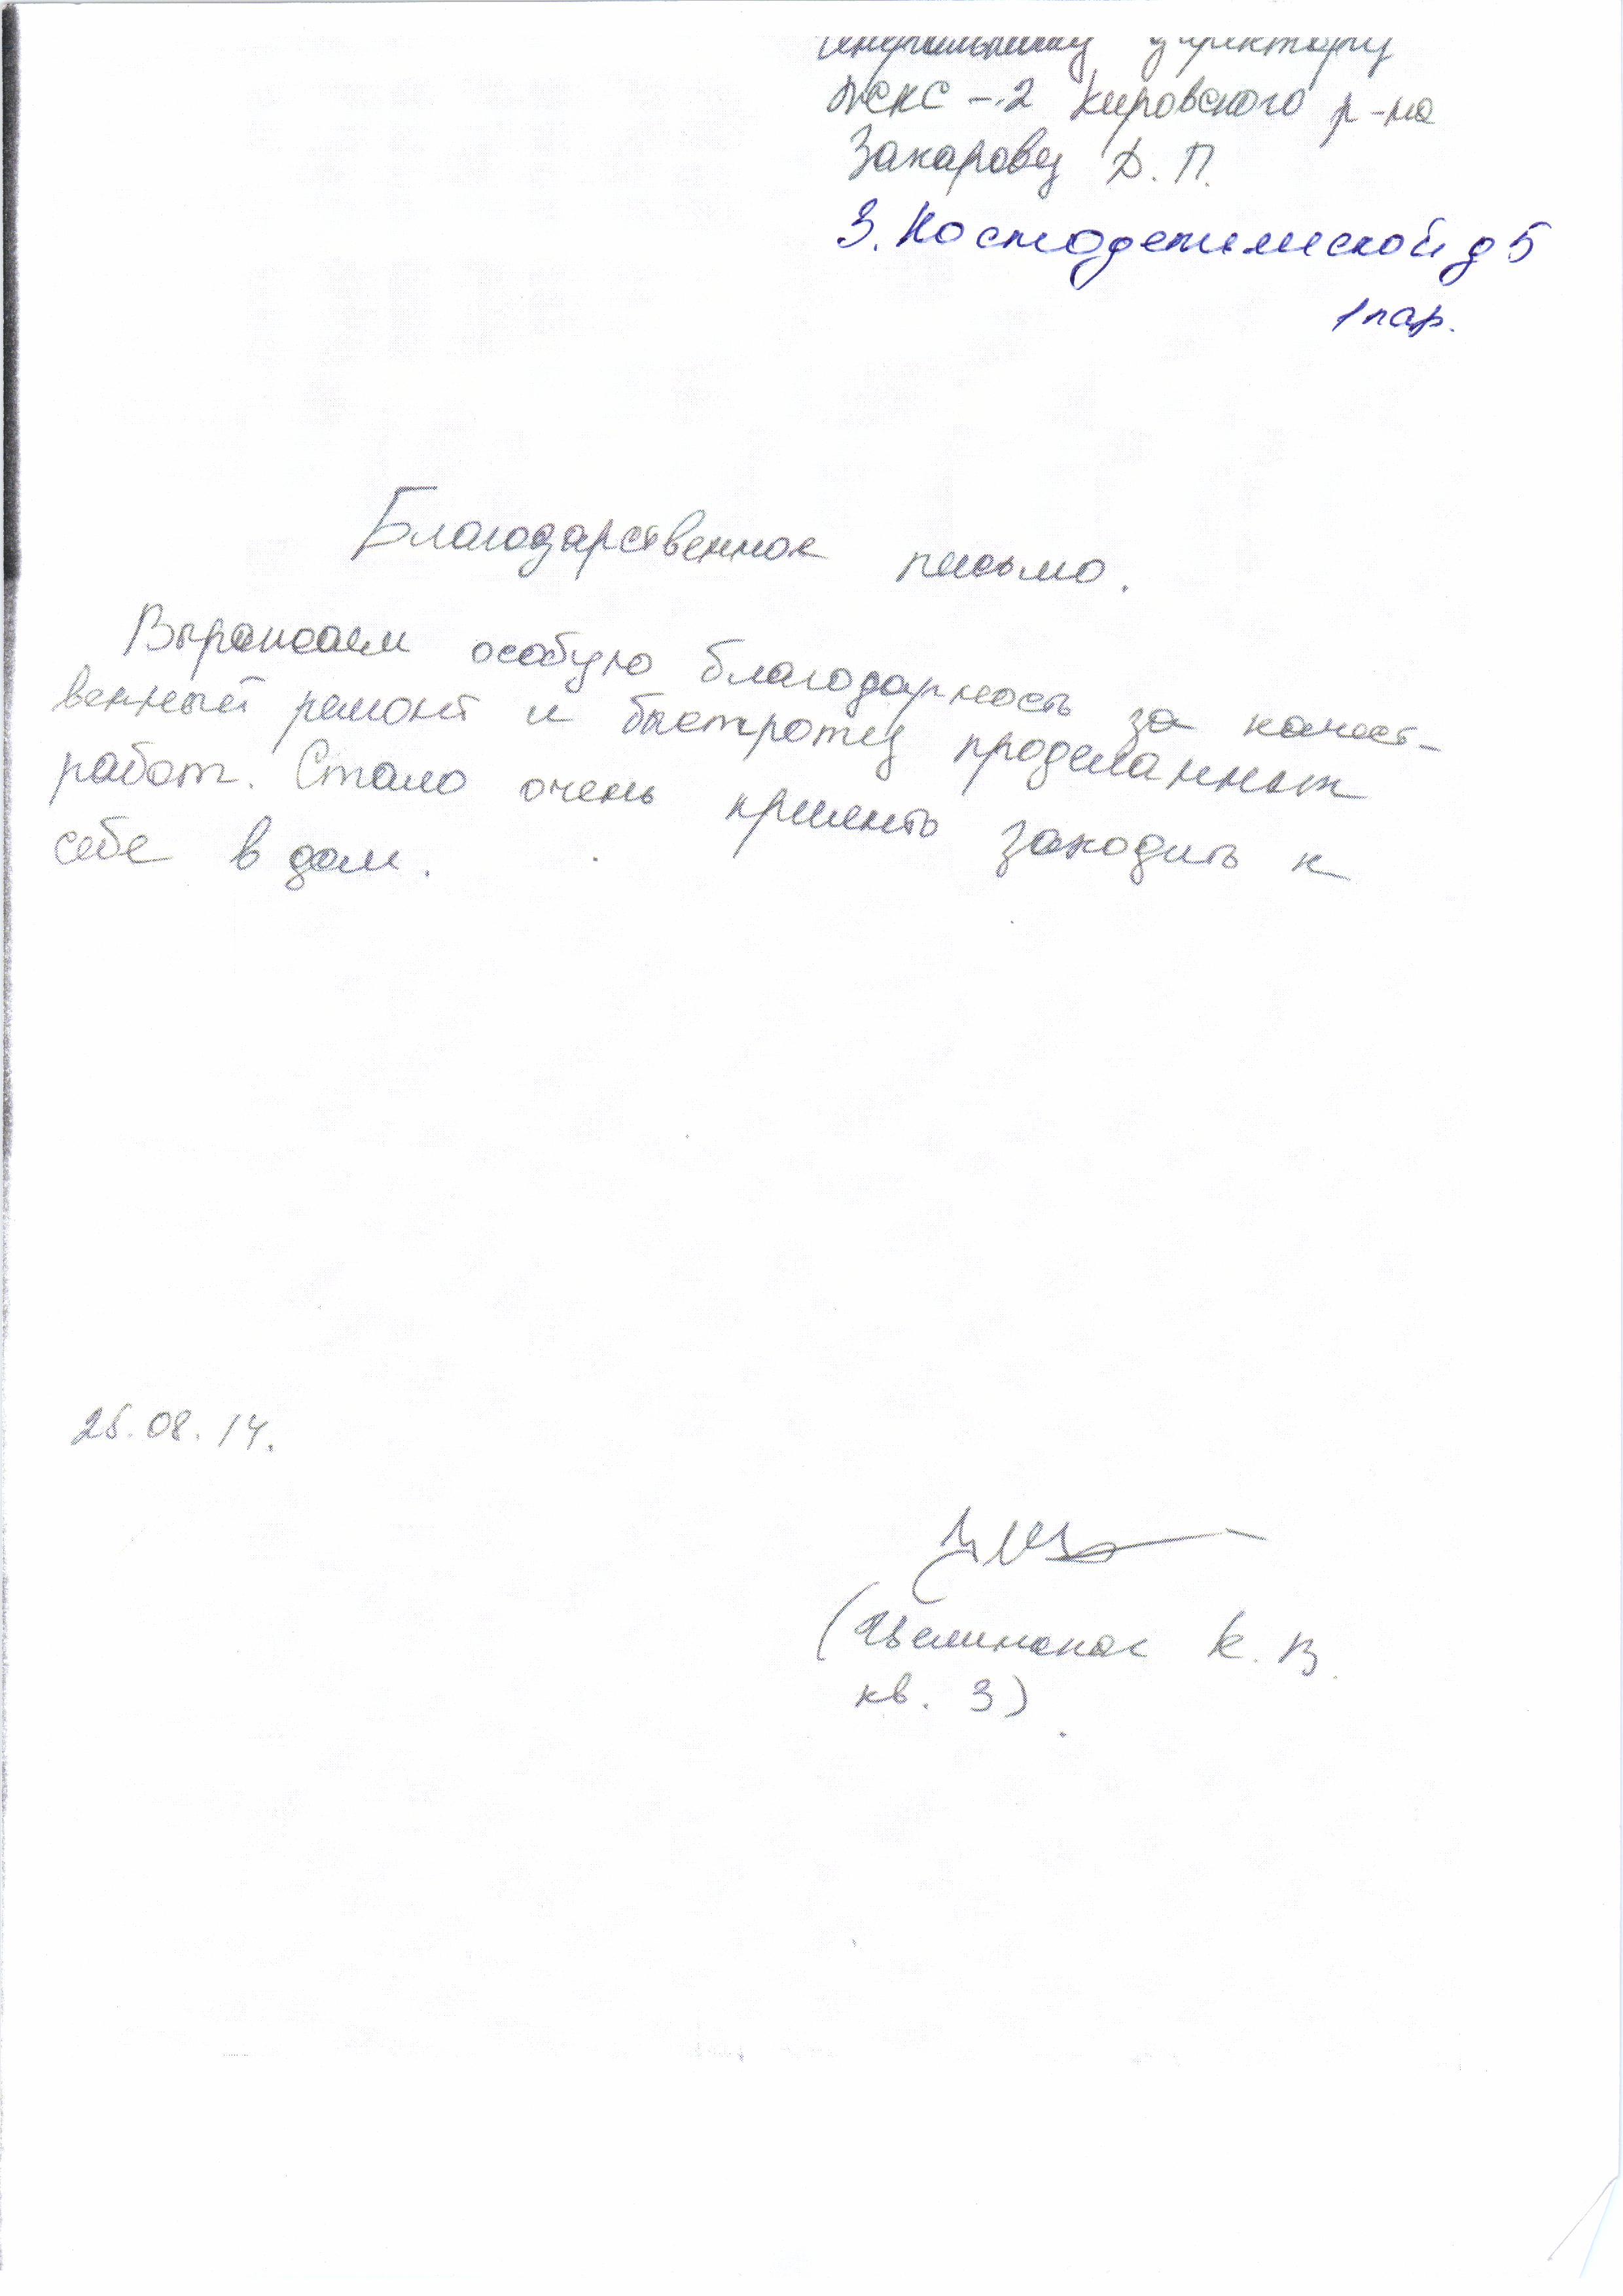 Генеральному директору
ЖСКС-2 Кировского р-на
Захарову Д.П.
З. Космодемьянской д 5
1 пар.
Благодарственное письмо.
Выражаем особую благодарность за качест-
венный ремонт и быстроту проделанных
работ. Стало очень приянто заходить к
себе в дом.
25.08.14.
К. В.
кв. 3)